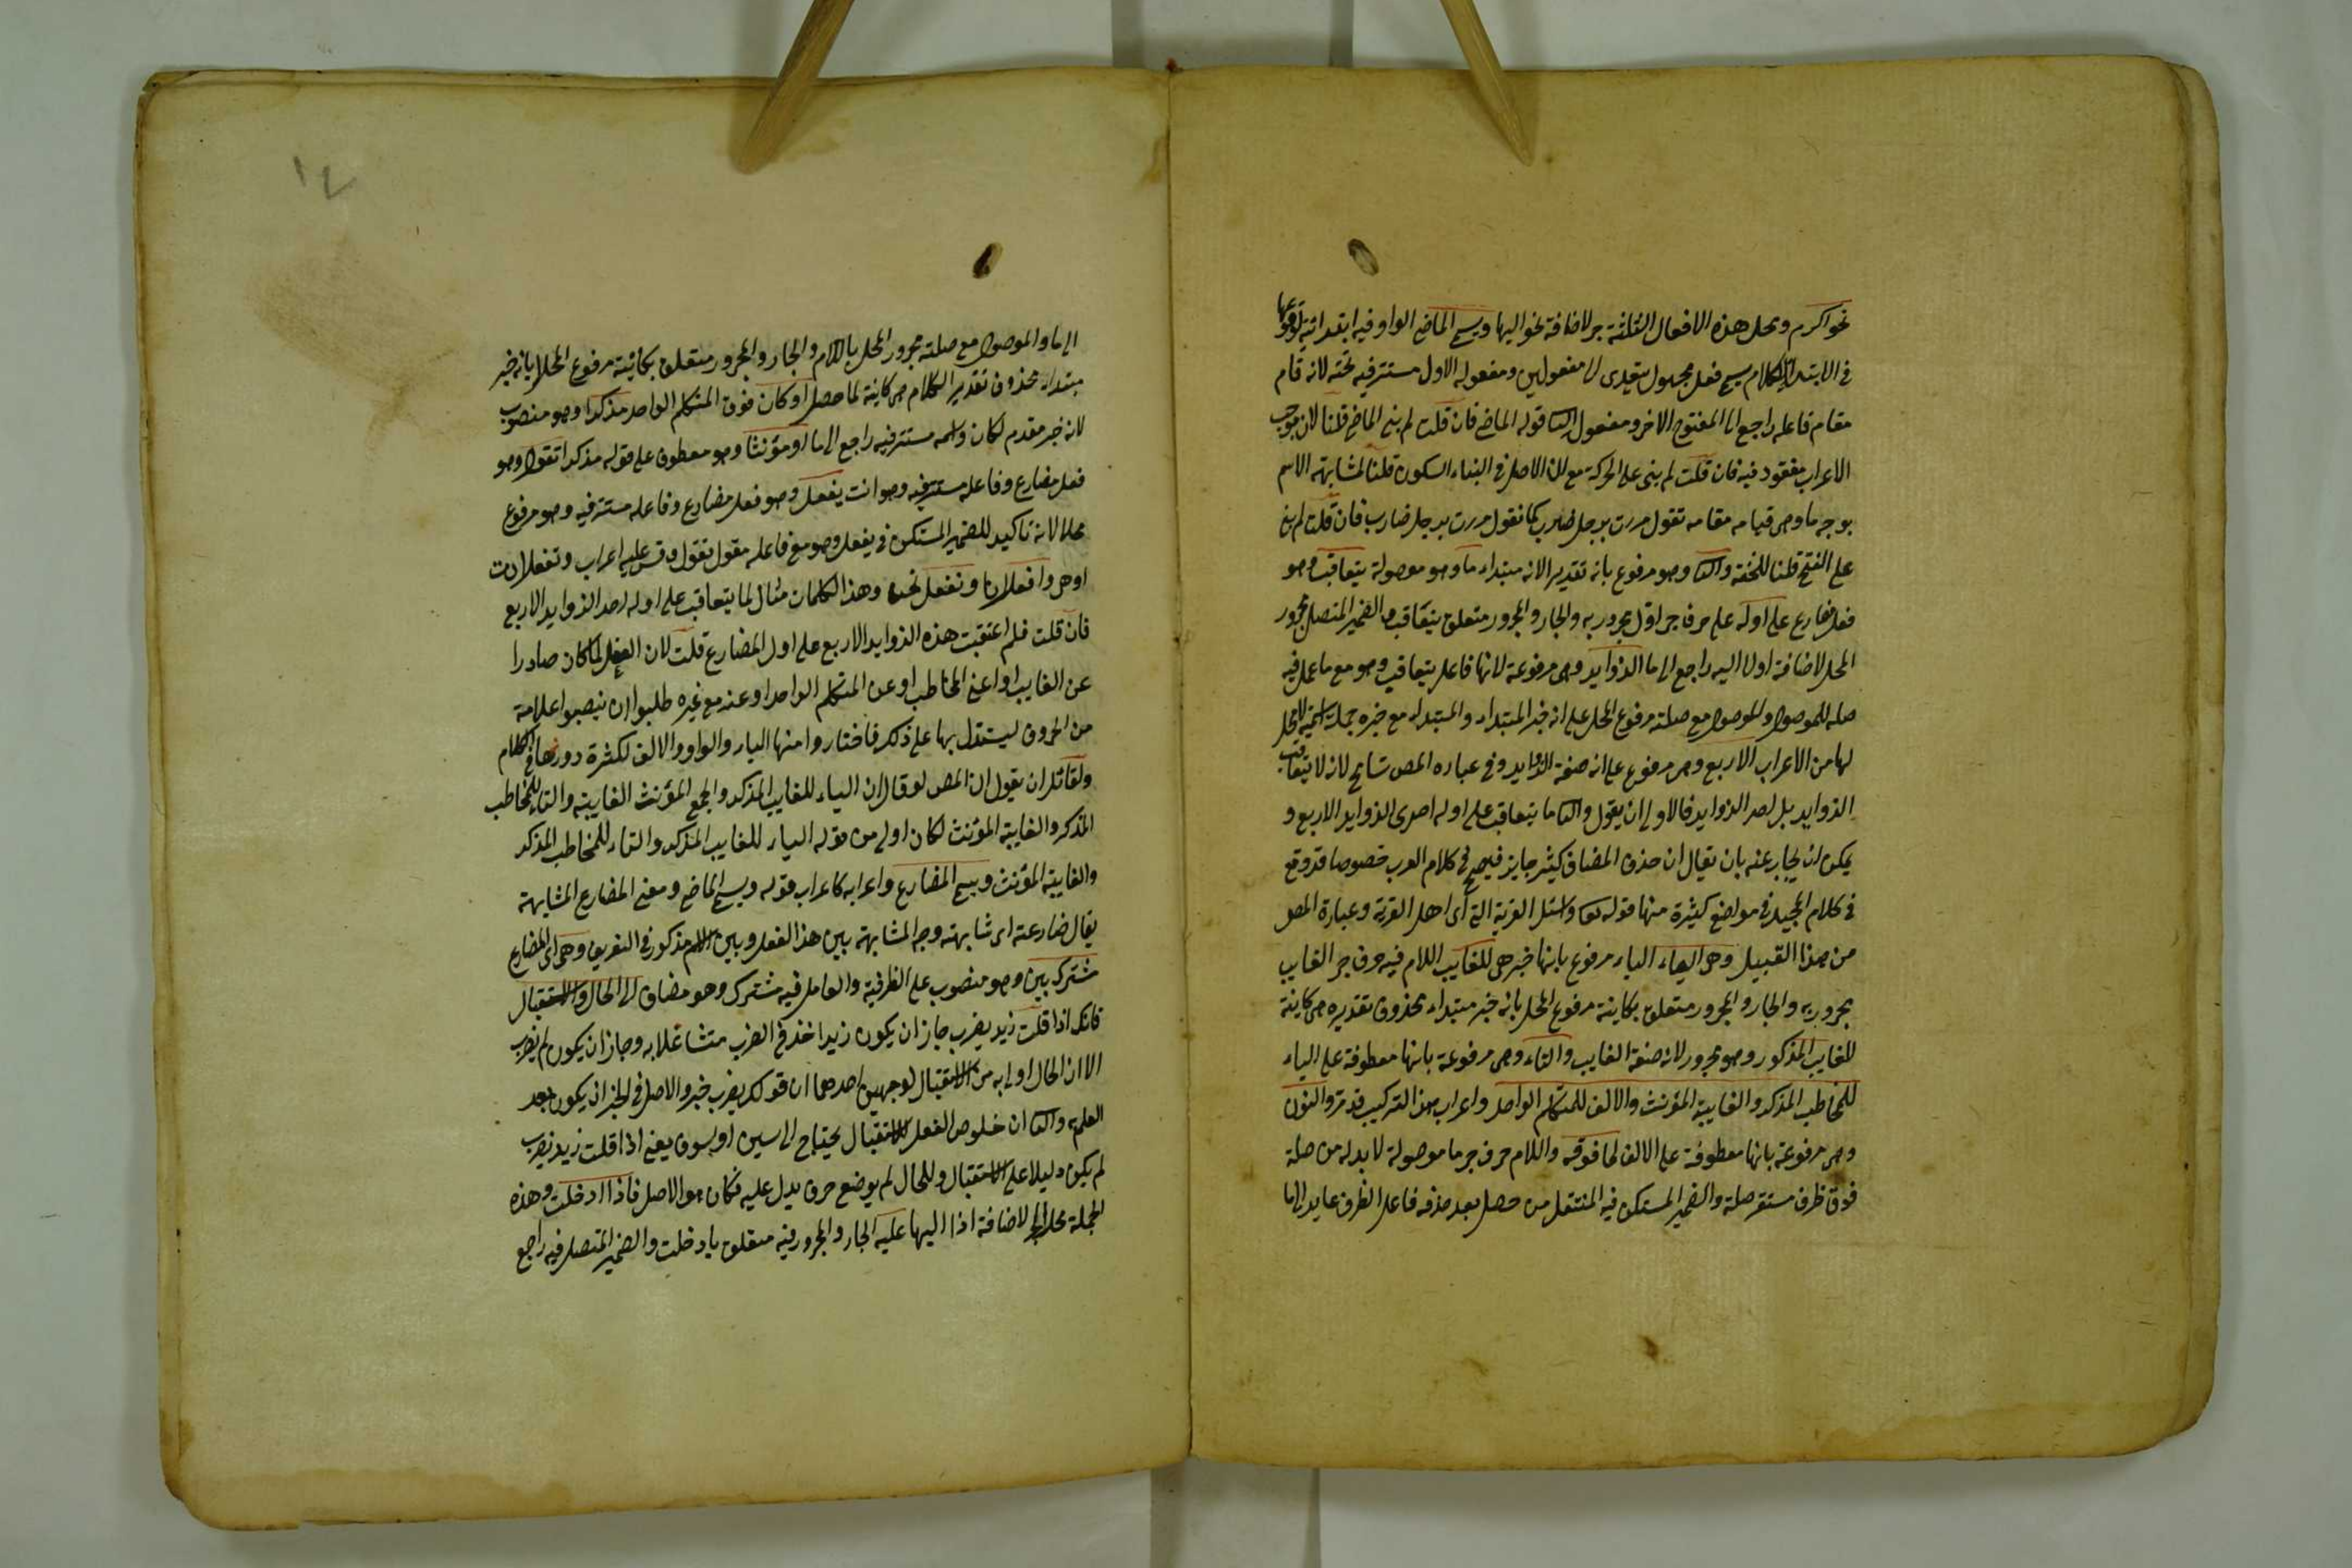 نحو اكرم ومحل هذه الافعال الثلثة جر لاضافة نحو اليها ويسمى الماضى الواو فيه ابتدائية لوقوعها
فى الابتداء الكلام يسمى فعل مجهول يتعدى الى مفعولين ومفعوله الاول مستتر فيه تحته لانه قام
مقام فاعله راجع الى المفتوح الاخر ومفعول الثا قوله الماضى فان قلت لم بنى الماضى قلنا لان موجب
الاعراب مفقود فيه فان قلت لم بنى على الحركة مع ان الاصل فى البناء السكون قلنا لمشابهته الاسم
بوجه ما وهى قيامه مقامه تقول مررت برجل ضرب كما تقول مررت برجل ضارب فان قلت لم بنى
على الفتح قلنا للخفة والثا وهو مرفوع بانه تقديرا لانه مبتداء ما وهو موصولة يتعاقب وهو
فعل مضارع على اوله على حرف جر اول مجرور به والجار والمجرور متعلق بيتعاقب والضمير المتصل مجرور
المحل لاضافة اول اليه راجع الى ما الزوايد وهى مرفوعة لانها فاعل يتعاقب وهو مع ما عمل فيه
صلة للموصول والموصول مع صلته مرفوع المحل على انه خبر المبتداء والمبتداء مع خبره جملة اسمية لا محل
لها من الاعراب الاربع وهى مرفوع على انه صفة الزوايد وفى عباره المص تسامح لانه لا يتعاقب
الزوايد بل احد الزوايد فالاولى ان يقول والثا ما يتعاقب على اوله احدى الزوايد الاربع و
يمكن ان يجاب عنه بان يقال ان حذف المضاف كثير جايز فصيح فى كلام العرب خصوصا قد وقع
فى كلام المجيد فى مواضع كثيرة منها قوله تعا واسئل القرية التى اى اهل القرية وعبارة المص
من هذا القبيل وهى الياء الياء مرفوع بانها خبر هى للغايب اللام فيه حرف جر الغايب
مجرور به والجار والمجرور متعلق بكاينة مرفوع المحل بانه خبر مبتداء محذوف تقديره هى كاينة
للغايب المذكور وهو مجرور لانه صفة الغايب والتاء وهى مرفوعة بانها معطوفة على الياء
للمخاطب المذكر والغايبة المؤنث والالف للمتكلم الواحد واعراب هذا التركيب قد مر والنون
وهى مرفوعة بانها معطوفة على الالف لما فوقه واللام حرف جر ما موصولة لا بد له من صلة
فوق ظرف مستقر صلة والضمير المستكن فيه المنتقل من حصل بعد حذفه فاعل الظرف عايد الى ما
١٤
الى ما والموصول مع صلته مجرور المحل باللام والجار والمجرور متعلق بكائنة مرفوع المحل بانه خبر
مبتداء محذوف تقدير الكلام هى كاينة لما حصل او كان فوق المتكلم الواحد مذكرا وهو منصوب
لانه خبر مقدم لكان واسمه مستتر فيه راجع الى ما او مؤنثا وهو معطوف على قوله مذكرا تقول وهو
فعل مضارع وفاعله مستتر فيه وهو انت يفعل وهو فعل مضارع وفاعله مستتر فيه وهو مرفوع
محلا لانه تاكيد للضمير المستكن فى يفعل وهو مع فاعله مقول تقول وقس عليه اعراب وتفعل انت
او هى وافعل انا ونفعل نحن وهذا الكلمات مثال لما يتعاقب على اوله احد الزوايد الاربع
فان قلت فلم اعتقبت هذه الزوايد الاربع على اول المضارع قلت لان الفعل لما كان صادرا
عن الغايب او اعنى المخاطب او عن المتكلم الواحد او عنه مع غيره طلبوا ان ينصبوا علامة
من الحروف ليستدل بها على ذلك فاختاروا منها الياء والواو والالف لكثرة دورها فى الكلام
ولقائل ان يقول ان المص لو قال ان الياء للغايب المذكر والجمع المؤنث الغايبة والتاء للمخاطب
المذكر والغايبة المؤنث لكان اولى من قوله الياء للغايب المذكر والتاء للمخاطب المذكر
والغايبة المؤنث ويسمى المضارع واعرابه كاعراب قوله ويسمى الماضى ومعنى المضارع المشابهة
يقال ضارعته اى شابهته وجه المشابهة بين هذا الفعل وبين الاسم مذكور فى التعريف وهى اى المضارع
مشترك بين وهو منصوب على الظرفية والعامل فيه مشترك وهو مضاف الى الحال والاستقبال
فانك اذا قلت زيد يضرب جاز ان يكون زيد اخذ فى الضرب متشاغلا به وجاز ان يكون لم يضرب
الا ان الحال اولى به من الاستقبال لوجهين احدهما ان قولك يضرب خبر والاصل فى الخبر ان يكون بعد
العلم والثا ان خلوص الفعل للاستقبال يحتاج الى سين او بسوف يعنى اذا قلت زيد يضرب
لم يكن دليلا على الاستقبال وللحال لم يوضع حرف يدل عليه فكان هو الاصل فاذا ادخلت وهذه
الجملة محل الجر لاضافة اذا اليها عليه الجار والمجرور فيه متعلق بادخلت والضمير المتصل فيه راجع